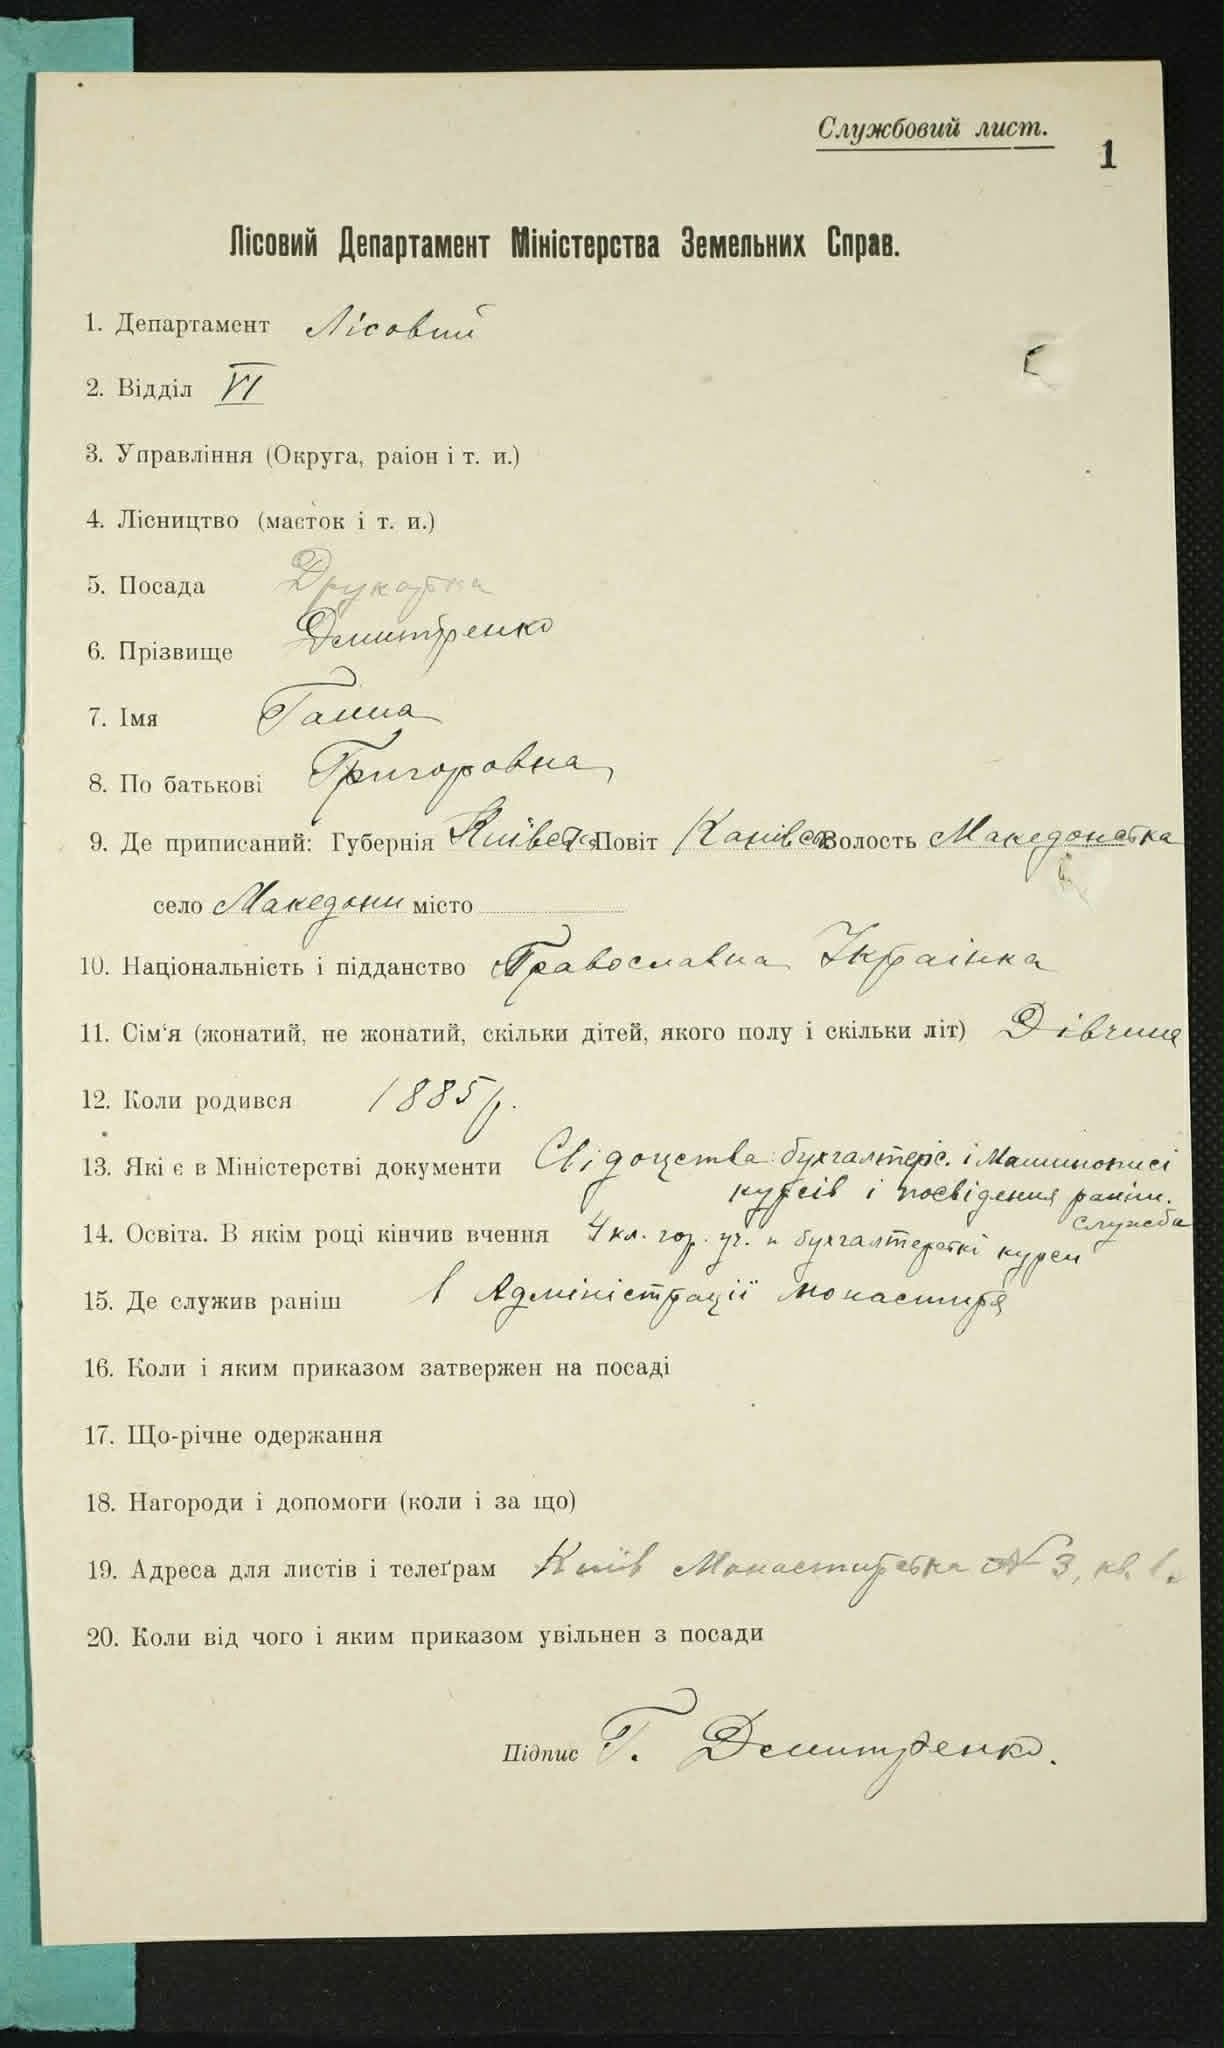 Службовий лист.
1
Лісовий Департамент Міністерства Земельних Справ.
1. Департамент Лісовий
2. Відділ VI
3. Управління (Округа, раіон і т. и.)
4. Лісництво (маєток і т. и.)
5. Посада Друкарка
6. Прізвище Дмитренко
7. Імя Ганна
8. По батькові Григоровна
9. Де приписаний: Губернія Київськ Повіт Канівськ Волость Македонська
село Македони місто
10. Національність і підданство Православна Українка
11. Сім'я (жонатий, не жонатий, скільки дітей, якого полу і скільки літ) Дівчина
12. Коли родився 1885 р.
13. Які є в Міністерстві документи Свідоцства бухгалтерс. і Машинописі
курсів і посвідения раніш.
служеба
14. Освіта. В якім році кінчив вчення 4 кл. гор. уч. и бухгалтерскі курси
15. Де служив раніш в Адміністрації монастиря
16. Коли і яким приказом затвержен на посаді
17. Що-річне одержання
18. Нагороди і допомоги (коли і за що)
19. Адреса для листів і телеґрам Київ Монастирська № 3, кв. 1.
20. Коли від чого і яким приказом увільнен з посади
Підпис Г. Дмитренко.